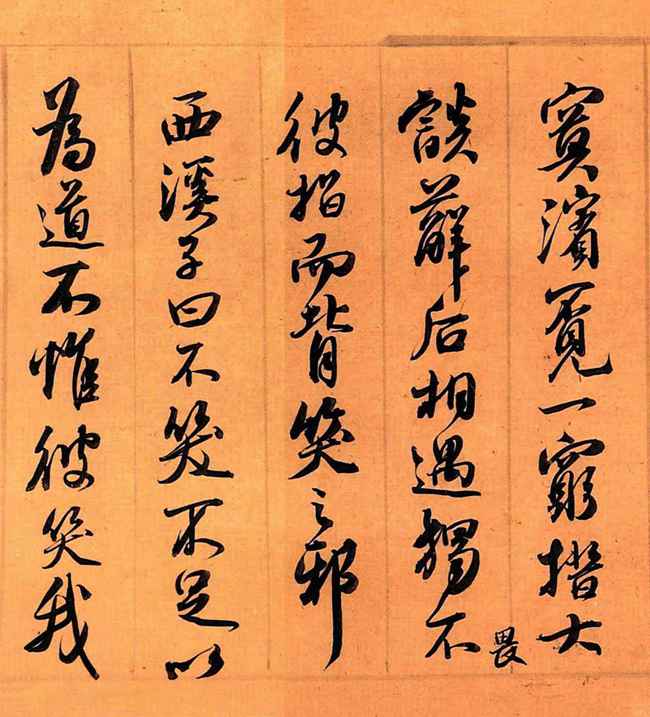 寞濱覓一窮措大
薢后相遇獨不畏
彼指而背笑之邪
西溪子曰不笑不足以
為道不惟彼笑我